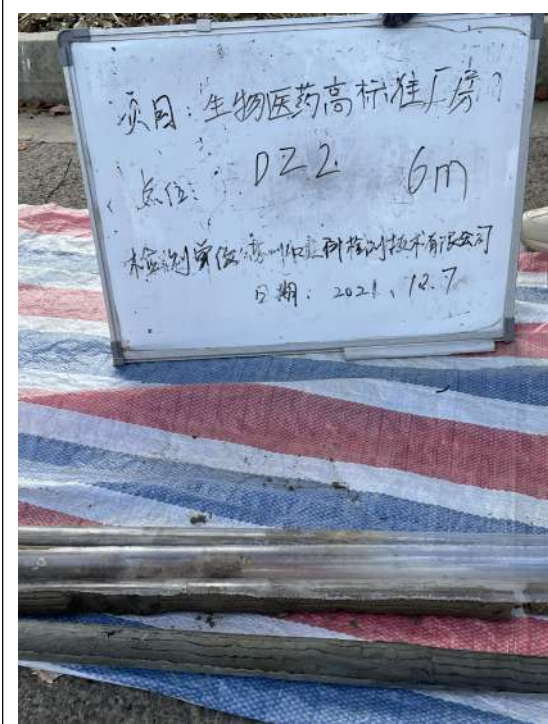 项目：生物医药高标准厂房
点位： DZ2 6m
检测单位：苏州 科检测技术有限公司
日期：2021、12.7